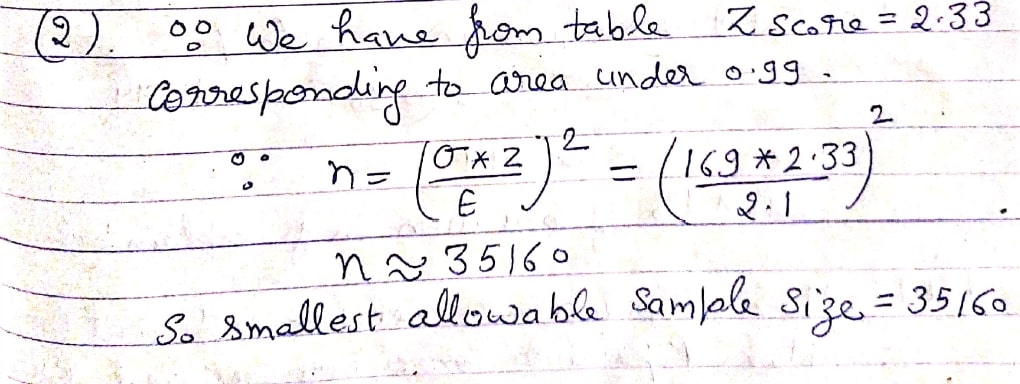 (2). ∵ We have from table Z score = 2.33
Corresponding to area under 0.99.
∵ n = (σ * Z / E)² = (169 * 2.33 / 2.1)²
n ≈ 35160
So smallest allowable Sample Size = 35160